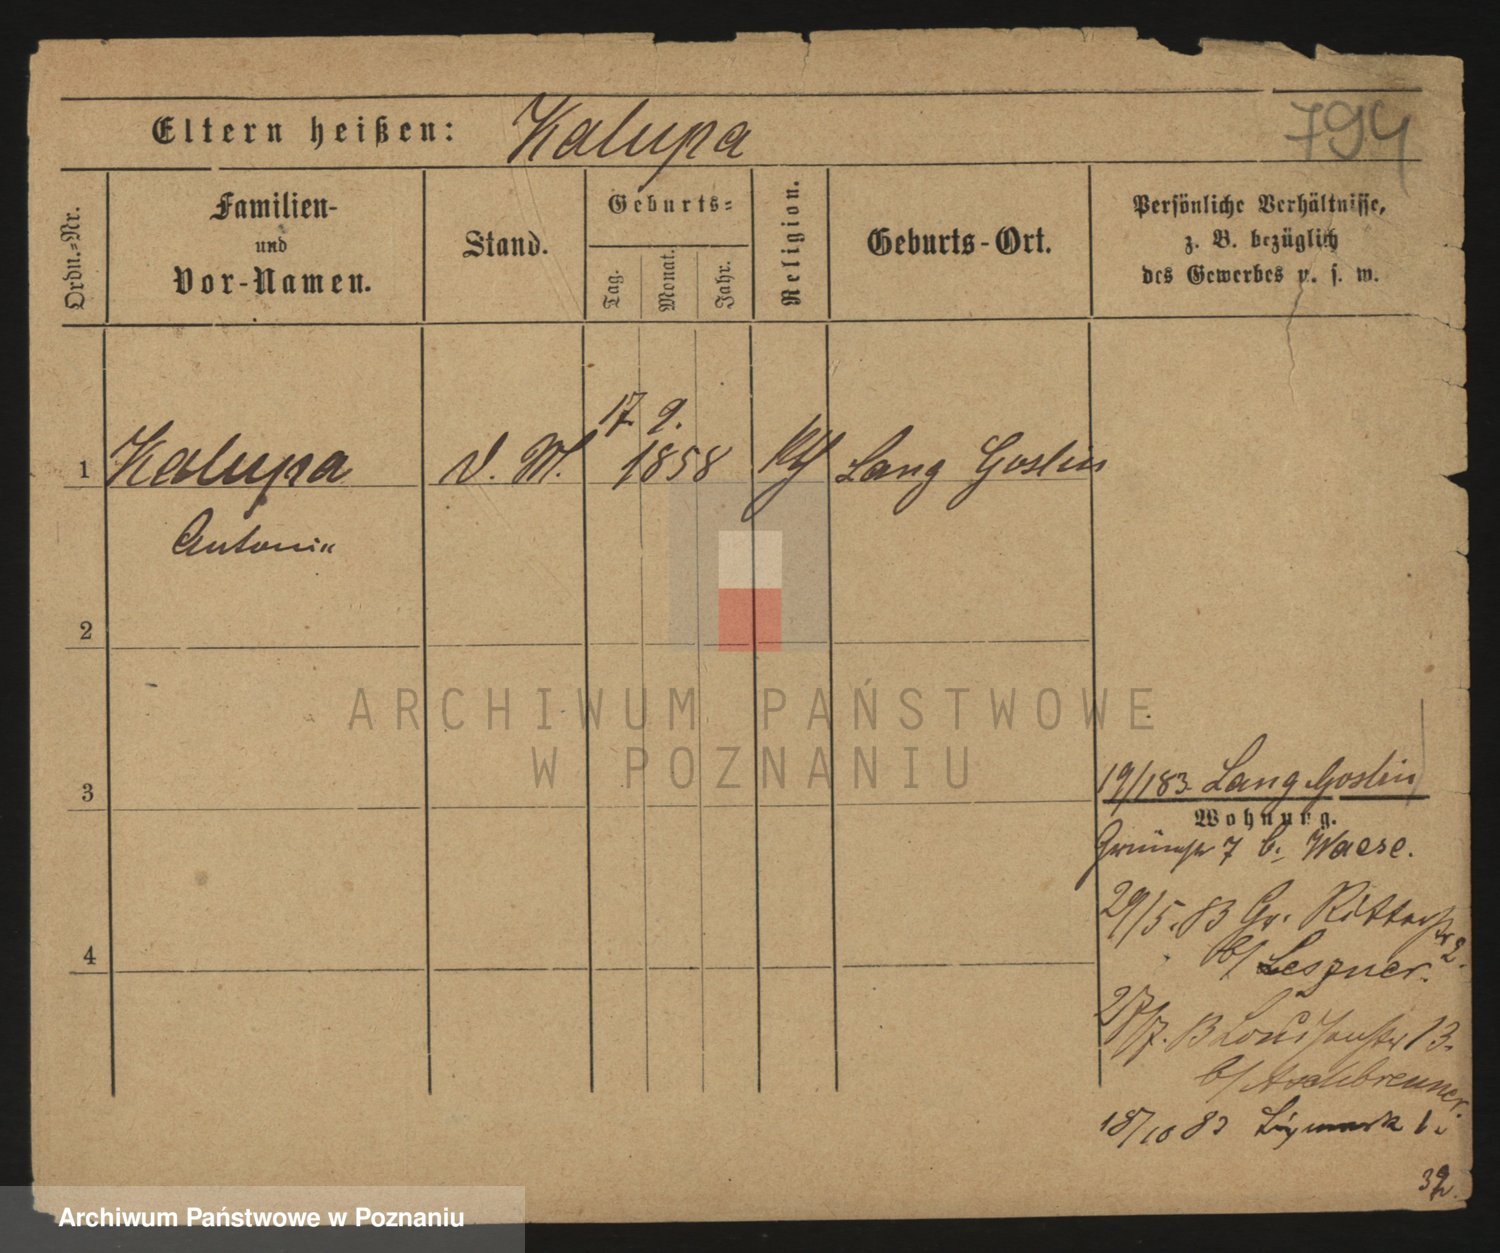 Eltern heißen: Kalupa
794
Ordn.-Nr.
Familien-
und
Vor-Namen.
Stand.
Geburts-
Tag.
Monat.
Jahr.
Religion.
Geburts-Ort.
Persönliche Verhältnisse,
z. B. bezüglich
des Gewerbes u. s. w.
17. 9.
1 Kalupa D. M. 1858 Kth Lang Goslin
Antonie
2
3
4
19/1 83. Lang Goslin
Wohnung.
7 b. Waese.
29/5. 83 Gr. Ritterstr 2.
b/ Leszner.
27/7. 83 Louisenstr 13.
b/ Aschbrenner.
18/10 83 1.
32.
ARCHIWUM PAŃSTWOWE
W POZNANIU
Archiwum Państwowe w Poznaniu